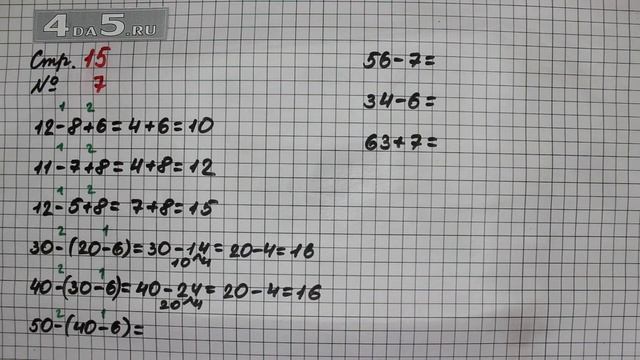 4DA5.RU
Стр. 15
№ 7
1 2
12-8+6=4+6=10
1 2
11-7+8=4+8=12
1 2
12-5+8=7+8=15
2 1
30-(20-6)=30-14=20-4=16
10 4
2 1
40-(30-6)=40-24=20-4=16
20 4
2 1
50-(40-6)=
56-7=
34-6=
63+7=